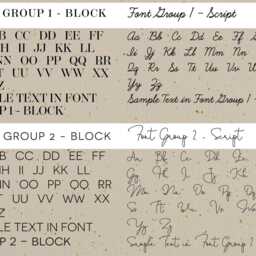 GROUP 1 - BLOCK
B CC DD EE FF
H II JJ KK LL
NN OO PP QQ RR
TT UU VV WW XX
Z
LE TEXT IN FONT
P 1 - BLOCK
Font Group 1 - Script
Aa Bb Cc Dd Ee Ff
Ii Jj Kk Ll Mm Nn
Qq Rr Ss Tt Uu Vv
Yy Zz
Sample Text in Font Group 1
GROUP 2 - BLOCK
B CC DD EE FF
H II JJ KK LL
NN OO PP QQ RR
TT UU VV WW XX
Z
LE TEXT IN FONT
P 2 - BLOCK
Font Group 2 - Script
Aa Bb Cc Dd Ee
Gg Hh Ii Jj Kk
Mm Nn Oo Pp Qq
Ss Tt Uu Vv Ww
Yy Zz
Sample Text in Font Group